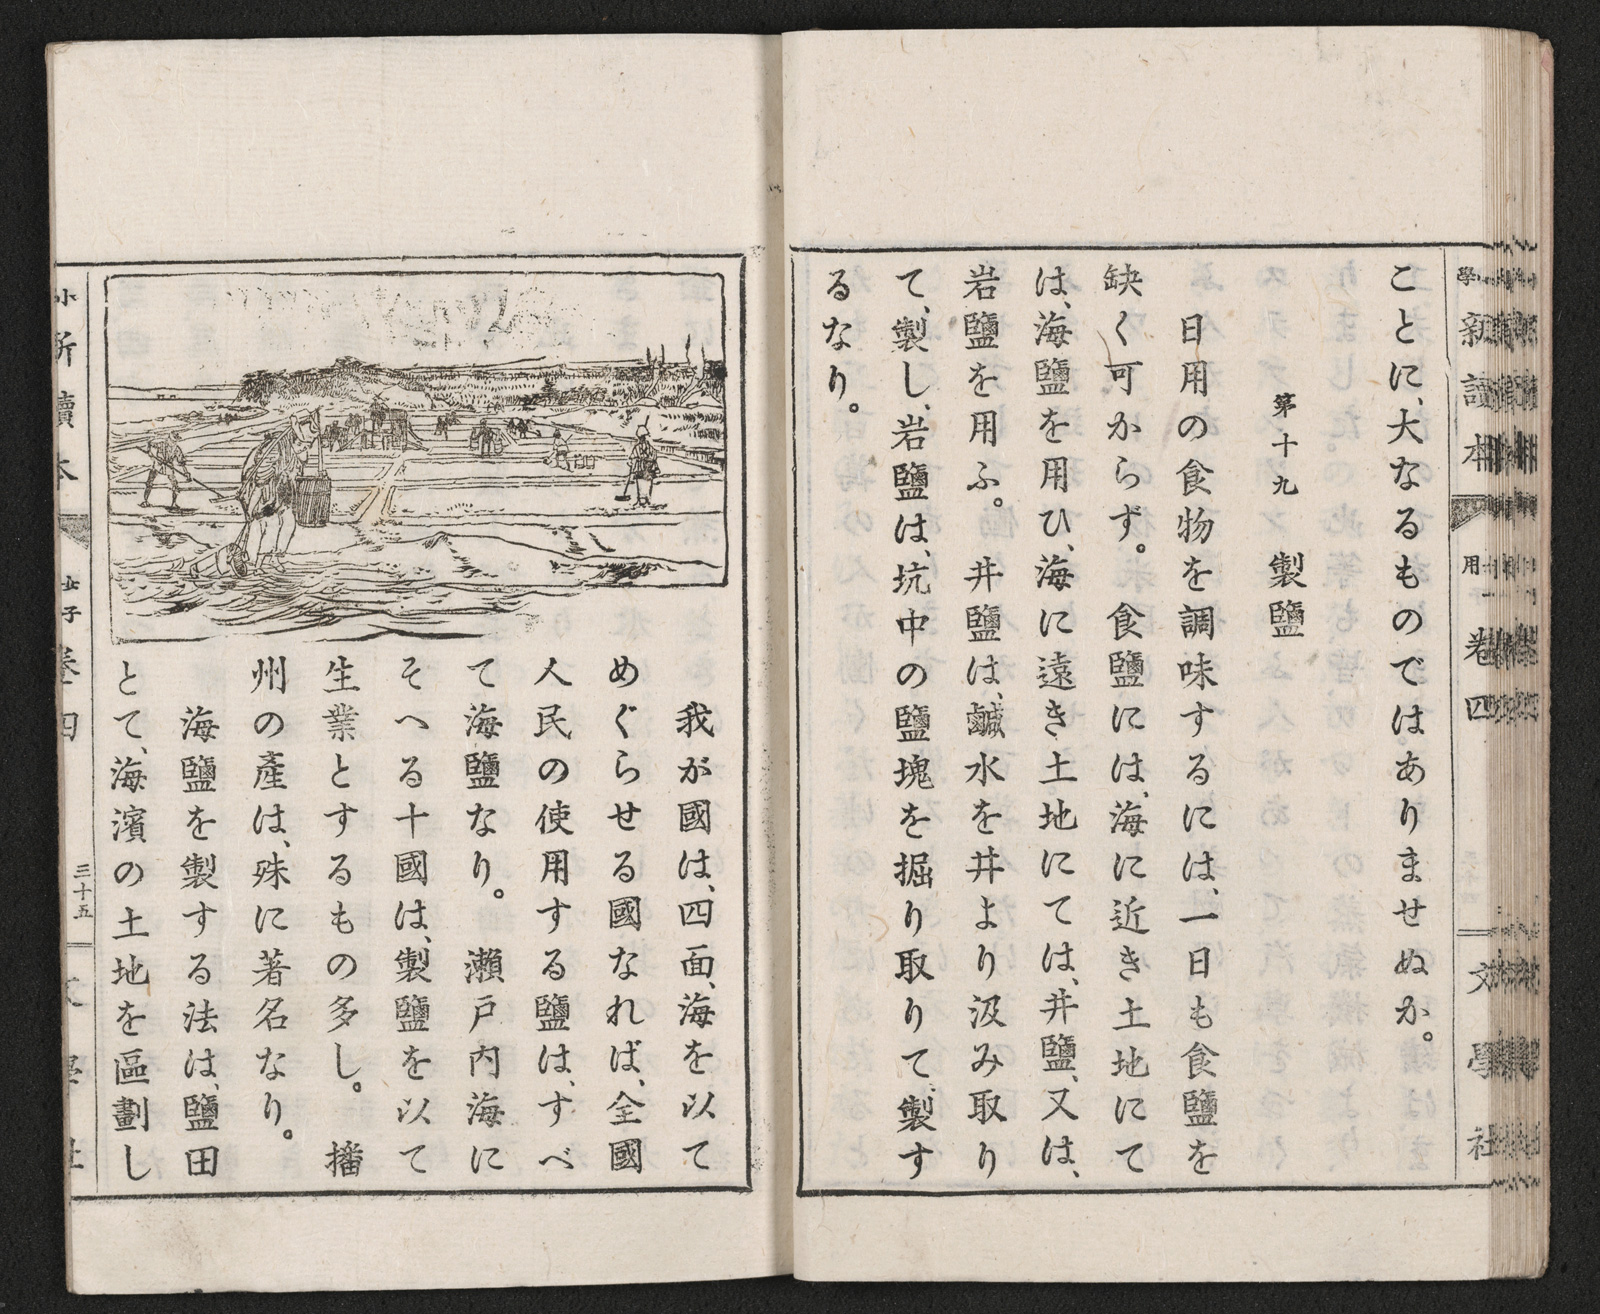 ことに、大なるものではありませぬか。
第十九 製鹽
日用の食物を調味するには、一日も食鹽を
缺く可からず。食鹽には、海に近き土地にて
は、海鹽を用ひ、海に遠き土地にては、井鹽、又は、
岩鹽を用ふ。井鹽は、鹹水を井より汲み取り
て、製し、岩鹽は、坑中の鹽塊を掘り取りて、製す
るなり。
學新讀本
用
卷四
文學社
我が國は、四面、海を以て
めぐらせる國なれば、全國
人民の使用する鹽は、すべ
て海鹽なり。瀨戸内海に
そへる十國は、製鹽を以て
生業とするもの多し。播
州の産は、殊に著名なり。
海鹽を製する法は、鹽田
とて、海濱の土地を區劃し
小新讀本
女子
卷四
三十五
文學社